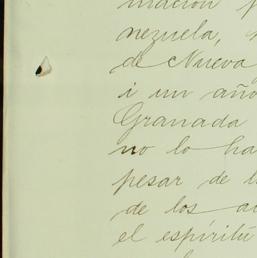 macion p
nezuela,
de Nueva
i un año
Granada
no lo ha
pesar de l
de los a
el espíritu